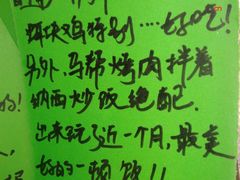 辣块鸡特别....好吃!
另外,马帮烤肉拌着
纳西炒饭绝配.
出来玩了近一个月,最美
好的一顿饭!!